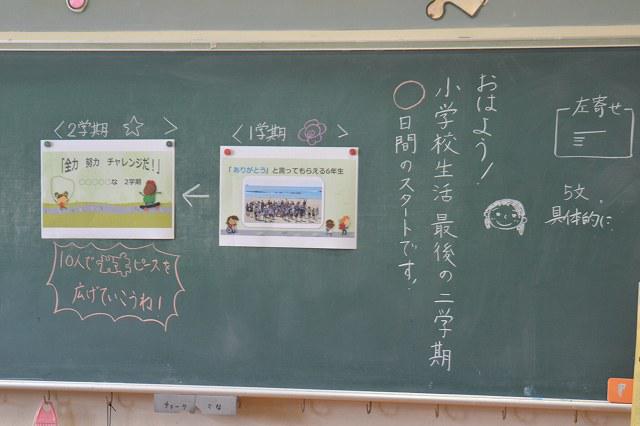 おはよう!
小学校生活 最後の二学期
○日間のスタートです!
左寄せ
5文、
具体的に
<1学期>
「ありがとう」と言ってもらえる6年生
<2学期 ☆>
「全力 努力 チャレンジだ!」
○○○○○な 2学期
10人でピースを
広げていこうね!